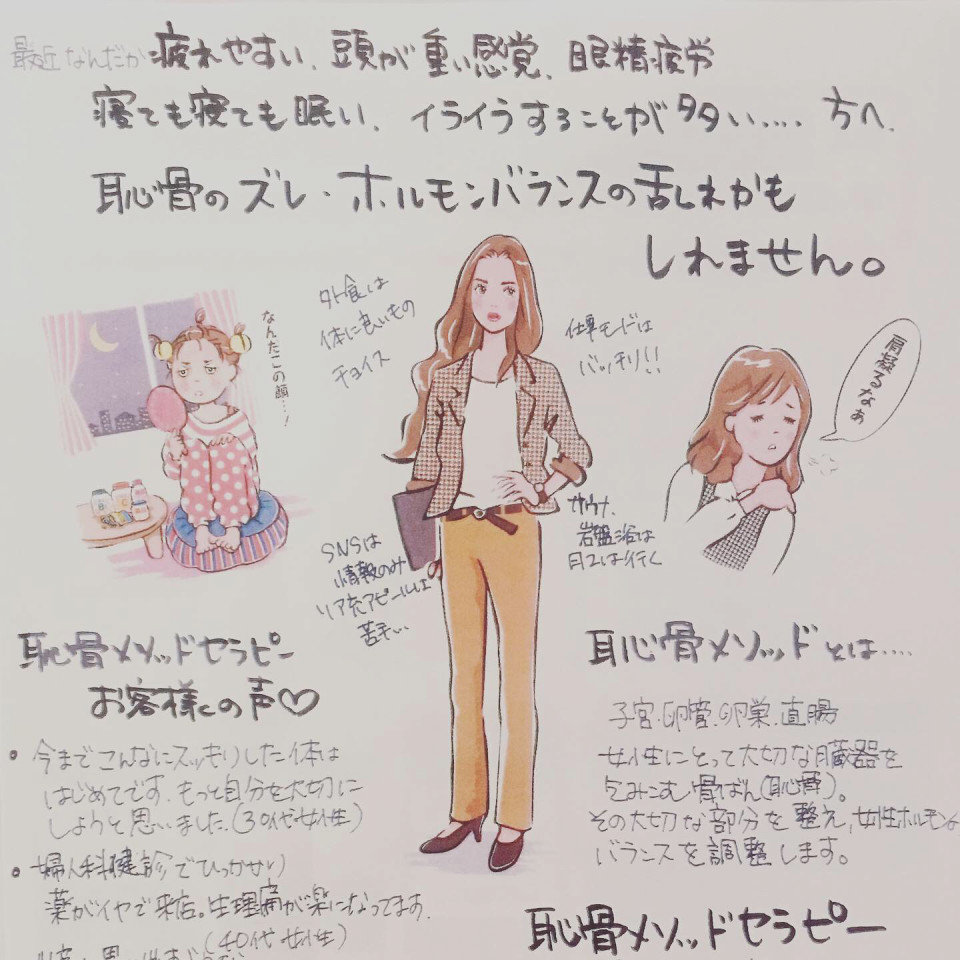 最近なんだか疲れやすい、頭が重い感覚、眼精疲労
寝ても寝ても眠い、イライラすることが多い.... 方へ、
恥骨のズレ・ホルモンバランスの乱れかも
しれません。
なんだこの顔…!
外食は
体に良いもの
チョイス
仕事モードは
バッチリ!!
肩凝るなぁ
SNSは
情報のみ
リア充アピールは
苦手…
サウナ、
岩盤浴は
月2は行く
恥骨メソッドセラピー
お客様の声♡
• 今までこんなにスッキリした体は
はじめてです。もっと自分を大切に
しようと思いました。(30代女性)
• 婦人科健診でひっかかり
薬がイヤで来店。生理痛が楽になってます。
(40代女性)
恥骨メソッドとは....
子宮.卵管.卵巣.直腸
女性にとって大切な臓器を
包みこむ骨ばん(恥骨)。
その大切な部分を整え、女性ホルモン
バランスを調整します。
恥骨メソッドセラピー